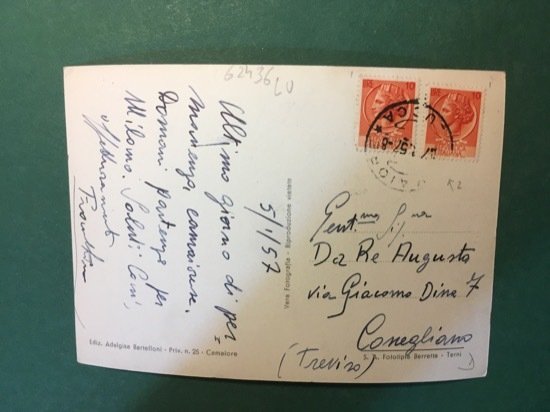 62436 LU
Ultimo giorno di per=
manenza camaiorese.
Domani partenza per
Milano. Saluti Cari,
affettuosamente
5/1/57
Vera Fotografia - Riproduzione vietata
Ediz. Adalgisa Bertelloni - Priv. n. 25 - Camaiore
10
10
LUCCA
52
Gent.ma Sig.na
Da Re Augusta
via Giacomo Dina 7
Conegliano
(Treviso)
S. A. Fototipia Berretta - Terni